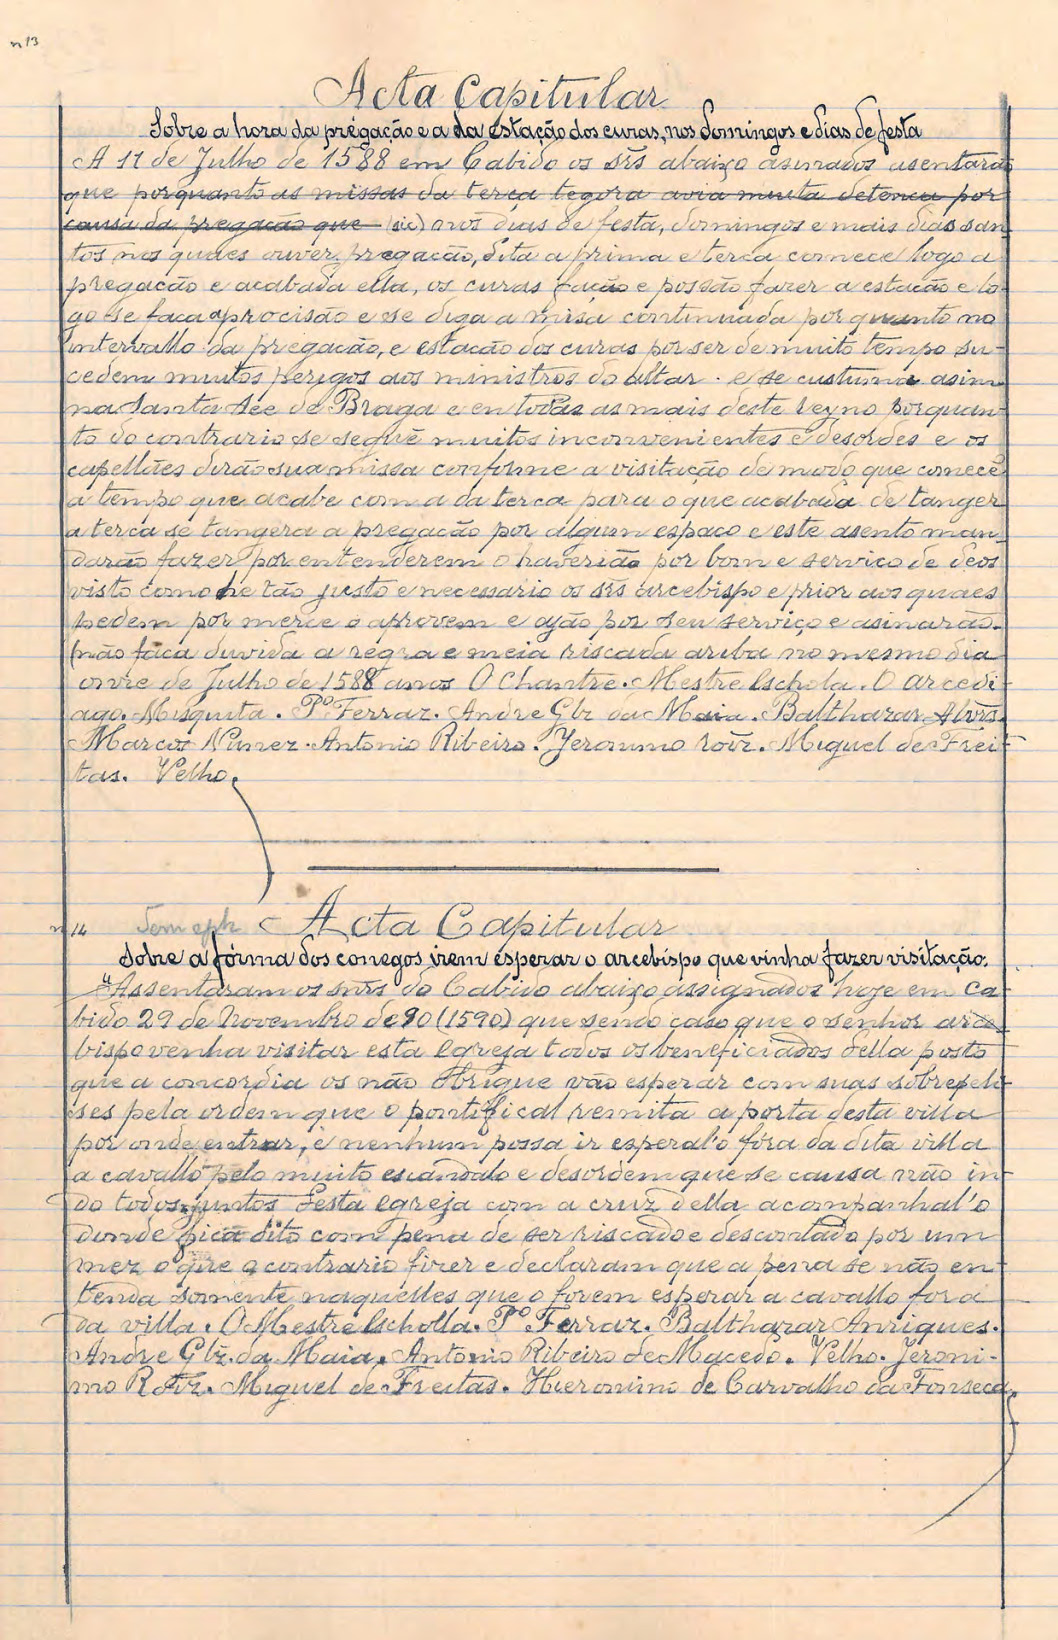 n 13
Acta Capitular
Sobre a hora da prégação e a da estação dos curas, nos domingos e dias de festa
A 11 de Julho de 1588 em Cabido os srs abaixo asinados asentarão
que porquanto as missas da terça tegora avia muita detenca por
causa da pregação que (sic) nos dias de festa, domingos e mais dias san-
tos nos quaes ouver pregacão, dita a prima e terca comece logo a
pregacão e acabada ella, os curas fação e possão fazer a estação e lo-
go se faca a procisão e se diga a misa continuada por quanto no
intervallo da pregacão, e estacão dos curas por ser de muito tempo su-
cedem muitos perigos aos ministros do altar. e se custuma asim
na Santa Sée de Braga e en todas as mais deste reyno porquan-
to do contrario se seguē muitos inconvenientes e desordēs e os
capellães dirão sua missa conforme a visitação de modo que comecē
a tempo que acabe com a da terca para o que acabada de tanger
a terca se tangera a pregacão por algum espaco e este asento man-
darão fazer por entenderem o haverião por bom e serviço de deos
visto como he tão justo e necessario os srs arcebispo e prior aos quaes
pedem por merce o aprovem e ajão por seu serviço e asinarão.
(não faca duvida a regra e meia riscada ariba no mesmo dia
onze de Julho de 1588 anos O Chantre. Mestre Eschola. O arcedi-
ago. Misquita. Pº Ferraz. Andre Glz da Maia. Balthazar Alvrs.
Marcos Nunez. Antonio Ribeiro. Jeronimo roiz. Miguel de Frei-
tas. Velho.
n 14
Acta Capitular
Sobre a fórma dos conegos irem esperar o arcebispo que vinha fazer visitação.
"Assentaram os snrs do Cabido abaixo assignados hoje em Ca-
bido 29 de Novembro de 90 (1590) que sendo caso que o senhor arce-
bispo venha visitar esta Egreja todos os beneficiados della posto
que a concordia os não obrigue vão esperar com suas sobrepeli-
ses pela ordem que o pontifical remita a porta desta villa
por onde entrar, e nenhum possa ir esperal'o fóra da dita villa
a cavallo pelo muito escandalo e desordem que se causa não in-
do todos juntos desta Egreja com a cruz della acompanhal'o
donde fica dito com pena de ser riscado e descontado por um
mez o que o contrario fizer e declaram que a pena se não en-
tenda somente naquelles que o forem esperar a cavallo fora
da villa. O Mestre Escholla. Pº Ferraz. Balthazar Anriques.
Andre Glz. da Maia. Antonio Ribeiro de Macedo. Velho. Jeroni-
mo Roiz. Miguel de Freitas. Hieronimo de Carvalho da Fonseca